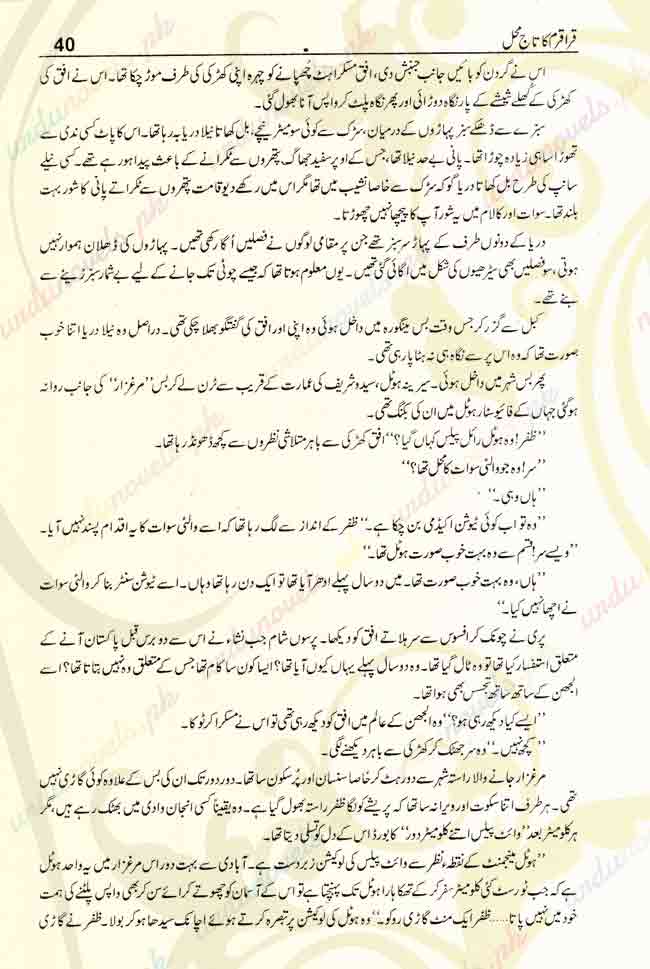 40
قراقرم کا تاج محل
اس نے گردن کو بائیں جانب جنبش دی، افق مسکراہٹ چھپانے کو چہرہ اپنی کھڑکی کی طرف موڑ چکا تھا۔ اس نے افق کی
کھڑکی کے کھلے شیشے کے پار نگاہ دوڑائی اور پھر نگاہ پلٹ کر واپس آنا بھول گئی۔
سبزے سے ڈھکے سبز پہاڑوں کے درمیان، سڑک سے کوئی سو میٹر نیچے، بل کھاتا نیلا دریا بہہ رہا تھا۔ اس کا پاٹ کسی ندی سے
تھوڑا سا ہی زیادہ چوڑا تھا۔ پانی بے حد نیلا تھا، جس کے اوپر سفید جھاگ پتھروں سے ٹکرانے کے باعث پیدا ہو رہے تھے۔ کسی نیلے
سانپ کی طرح بل کھاتا دریا گو کہ سڑک سے خاصا نشیب میں تھا مگر اس میں رکھے دیو قامت پتھروں سے ٹکراتے پانی کا شور بہت
بلند تھا۔ سوات اور کالام میں یہ شور آپ کا پیچھا نہیں چھوڑتا۔
دریا کے دونوں طرف کے پہاڑ سرسبز تھے جن پر مقامی لوگوں نے فصلیں اگا رکھی تھیں۔ پہاڑوں کی ڈھلان ہموار نہیں
ہوتی، سو فصلیں بھی سیڑھیوں کی شکل میں اگائی گئی تھیں۔ یوں معلوم ہوتا تھا کہ جیسے چوٹی تک جانے کے لیے بے شمار سبز زینے سے
بنے تھے۔
کبل سے گزر کر جس وقت بس مینگورہ میں داخل ہوئی وہ اپنی اور افق کی گفتگو بھلا چکی تھی۔ دراصل وہ نیلا دریا اتنا خوب
صورت تھا کہ وہ اس پر سے نگاہ ہی نہ ہٹا پا رہی تھی۔
پھر بس شہر میں داخل ہوئی۔ سیرینہ ہوٹل، سیدو شریف کی عمارت کے قریب سے ٹرن لے کر بس ”مرغزار“ کی جانب روانہ
ہو گئی جہاں کے فائیو سٹار ہوٹل میں ان کی بکنگ تھی۔
”ظفر! وہ ہوٹل رائل پیلس کہاں گیا؟“ افق کھڑکی سے باہر متلاشی نظروں سے کچھ ڈھونڈ رہا تھا۔
”سر! وہ جو والئی سوات کا محل تھا؟“
”ہاں وہی۔“
”وہ تو اب کوئی ٹیوشن اکیڈمی بن چکا ہے۔“ ظفر کے انداز سے لگ رہا تھا کہ اسے والئی سوات کا یہ اقدام پسند نہیں آیا۔
”ویسے سر! قسم سے وہ بہت خوب صورت ہوٹل تھا۔“
”ہاں، وہ بہت خوب صورت تھا۔ میں دو سال پہلے ادھر آیا تھا تو ایک دن رہا تھا وہاں۔ اسے ٹیوشن سنٹر بنا کر والئی سوات
نے اچھا نہیں کیا۔“
پری نے چونک کر افسوس سے سر ہلاتے افق کو دیکھا۔ پرسوں شام جب نشاء نے اس سے دو برس قبل پاکستان آنے کے
متعلق استفسار کیا تھا تو وہ ٹال گیا تھا۔ وہ دو سال پہلے یہاں کیوں آیا تھا؟ ایسا کون سا کام تھا جس کے متعلق وہ نہیں بتاتا تھا؟ اسے
الجھن کے ساتھ ساتھ تجسس بھی ہوا تھا۔
”ایسے کیا دیکھ رہی ہو؟“ وہ الجھن کے عالم میں افق کو دیکھ رہی تھی تو اس نے مسکرا کر ٹوکا۔
”کچھ نہیں۔“ وہ سر جھٹک کر کھڑکی سے باہر دیکھنے لگی۔
مرغزار جانے والا راستہ شہر سے دور ہٹ کر خاصا سنسان اور پُرسکون سا تھا۔ دور دور تک ان کی بس کے علاوہ کوئی گاڑی نہیں
تھی۔ ہر طرف اتنا سکوت اور ویرانہ سا تھا کہ پریشے کو لگا ظفر راستہ بھول گیا ہے۔ وہ یقیناً کسی انجان وادی میں بھٹک رہے ہیں، مگر
ہر کلومیٹر بعد ”وائٹ پیلس اتنے کلومیٹر دور“ کا بورڈ اس کے دل کو تسلی دیتا تھا۔
”ہوٹل مینجمنٹ کے نقطہء نظر سے وائٹ پیلس کی لوکیشن زبردست ہے۔ آبادی سے بہت دور اس مرغزار میں یہ واحد ہوٹل
ہے کہ جب ٹورسٹ کئی کلومیٹر سفر کر کے تھکا ہارا ہوٹل تک پہنچتا ہے تو اس کے آسمان کو چھوتے کرائے سن کر بھی واپس پلٹنے کی ہمت
خود میں نہیں پاتا..... ظفر ایک منٹ گاڑی روکو۔“ وہ ہوٹل کی لوکیشن پر تبصرہ کرتے ہوئے اچانک سیدھا ہو کر بولا۔ ظفر نے گاڑی
urdunovels.pk